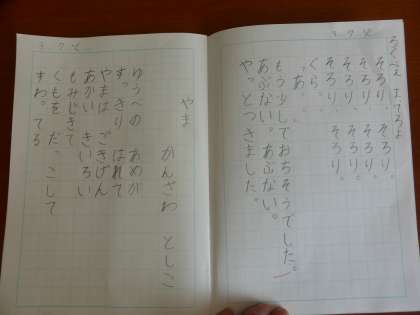 ろくべえ まってろよ
そろり。そろり。
そろり。そろり。
そろり。そろり。
そろり。そろり。
ぐら。
「あ。
もう少しでおちそうでした。」
あぶない。あぶない。
やっとつきました。
やま
かんざわ としこ
ゆうべの あめが
すっきり はれて
やまは ごきげん
あかい きいろい
もみじきて
くもを だっこして
すわってる